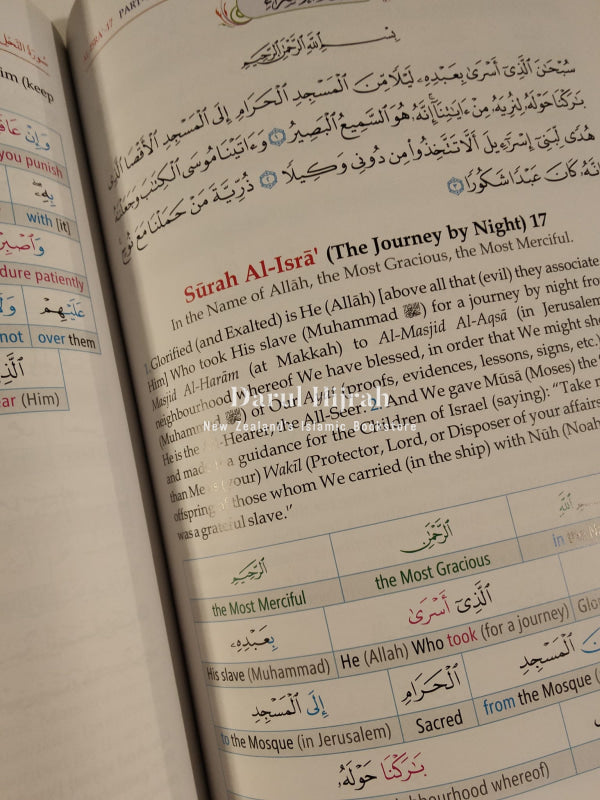 سُورَةُ النَّحْل
im (keep
وَإِنْ عَا
you punish
بِهِۦ
with [it]
dure patiently
عَلَيْهِمْ
not over them
ear (Him)
PART
بِسْمِ ٱللَّهِ ٱلرَّحْمَٰنِ ٱلرَّحِيمِ
سُبْحَٰنَ ٱلَّذِىٓ أَسْرَىٰ بِعَبْدِهِۦ لَيْلًا مِّنَ ٱلْمَسْجِدِ ٱلْحَرَامِ إِلَى ٱلْمَسْجِدِ ٱلْأَقْصَا ٱلَّذِى
بَٰرَكْنَا حَوْلَهُۥ لِنُرِيَهُۥ مِنْ ءَايَٰتِنَآ ۚ إِنَّهُۥ هُوَ ٱلسَّمِيعُ ٱلْبَصِيرُ ١ وَءَاتَيْنَا مُوسَى ٱلْكِتَٰبَ وَجَعَلْنَٰهُ
هُدًى لِّبَنِىٓ إِسْرَٰٓءِيلَ أَلَّا تَتَّخِذُوا۟ مِن دُونِى وَكِيلًا ٢ ذُرِّيَّةَ مَنْ حَمَلْنَا مَعَ نُوحٍ
كَانَ عَبْدًا شَكُورًا ٣
Sūrah Al-Isrā' (The Journey by Night) 17
In the Name of Allāh, the Most Gracious, the Most Merciful.
1. Glorified (and Exalted) is He (Allāh) [above all that (evil) they associate
Him] Who took His slave (Muhammad ﷺ) for a journey by night from
Masjid Al-Harām (at Makkah) to Al-Masjid Al-Aqsā (in Jerusalem
neighbourhood whereof We have blessed, in order that We might sho
(Muhammad ﷺ) of Our Ayāt (proofs, evidences, lessons, signs, etc.)
He is the All-Hearer, the All-Seer. 2. And We gave Mūsā (Moses) the
and made it a guidance for the Children of Israel (saying): "Take n
than Me as (your) Wakīl (Protector, Lord, or Disposer of your affairs
offspring of those whom We carried (in the ship) with Nūh (Noah
was a grateful slave."
Darul Hijrah
New Zealand's Islamic Bookstore
ٱلرَّحْمَٰنِ ٱلرَّحِيمِ
the Most Merciful the Most Gracious in the Na
ٱلَّذِىٓ أَسْرَىٰ بِعَبْدِهِۦ
His slave (Muhammad) He (Allah) Who took (for a journey) Glor
ٱلْمَسْجِدِ ٱلْحَرَامِ إِلَى ٱلْمَسْجِدِ
to the Mosque (in Jerusalem) Sacred from the Mosque
بَٰرَكْنَا حَوْلَهُۥ
hbourhood whereof)